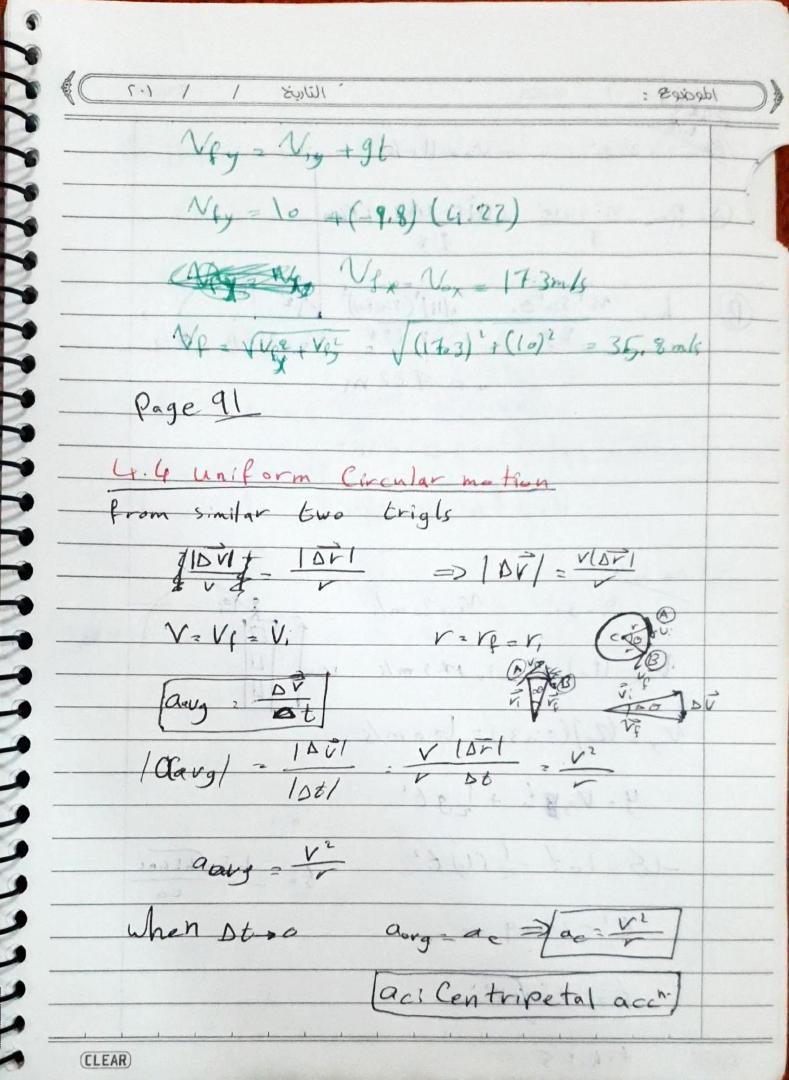 الموضوع : التاريخ / / ٢٠١
V_fy = V_iy + gt
V_fy = 10 + (-9.8) (4.22)
V_fx = V_ox = 17.3 m/s
V_f = √(V_fx² + V_fy²) = √((17.3)² + (10)²) = 35.8 m/s
Page 91
4.4 Uniform Circular motion
from similar two trigls
|Δv⃗|/v = |Δr⃗|/r ⇒ |Δv⃗| = v|Δr⃗|/r
V = V_f = V_i r = r_f = r_i
A r θ C V_i B V_f
a_avg = Δv⃗/Δt
A B r⃗_i θ r⃗_f v⃗_i θ v⃗_f Δv⃗
|a_avg| = |Δv⃗|/|Δt| = V/r |Δr⃗|/Δt = V²/r
a_avg = V²/r
when Δt→0 a_avg = a_c ⇒ a_c = V²/r
a_c: Centripetal accⁿ.
CLEAR